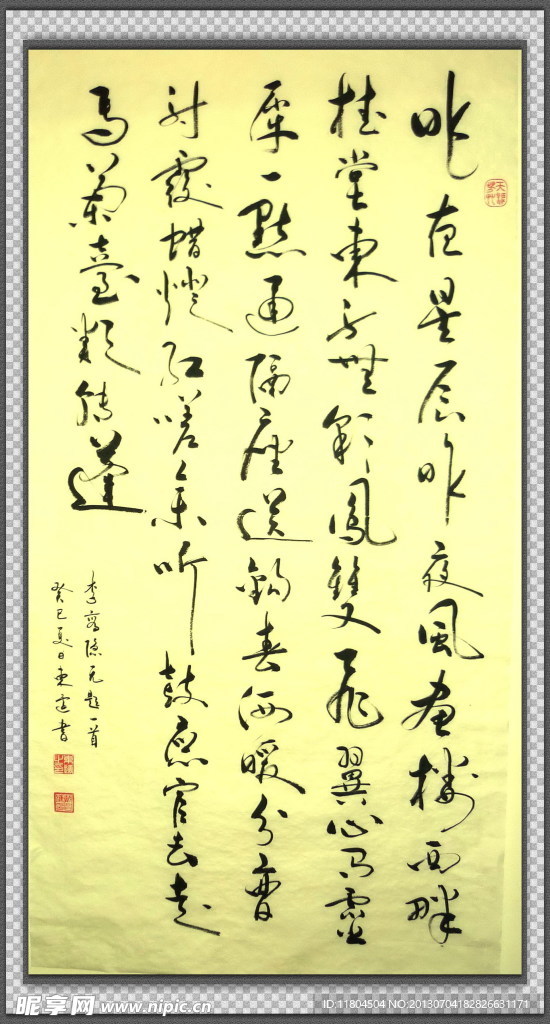 昨夜星辰昨夜風畫樓西畔
桂堂東身無彩鳳雙飛翼心有靈
犀一點通隔座送鈎春酒暖分曹
射覆蜡燈紅嗟余听鼓應官去走
馬蘭臺類轉蓬
李商隱无題一首
癸巳夏日書
昵享网 www.nipic.cn
ID:11804504 NO:20130704182826631171